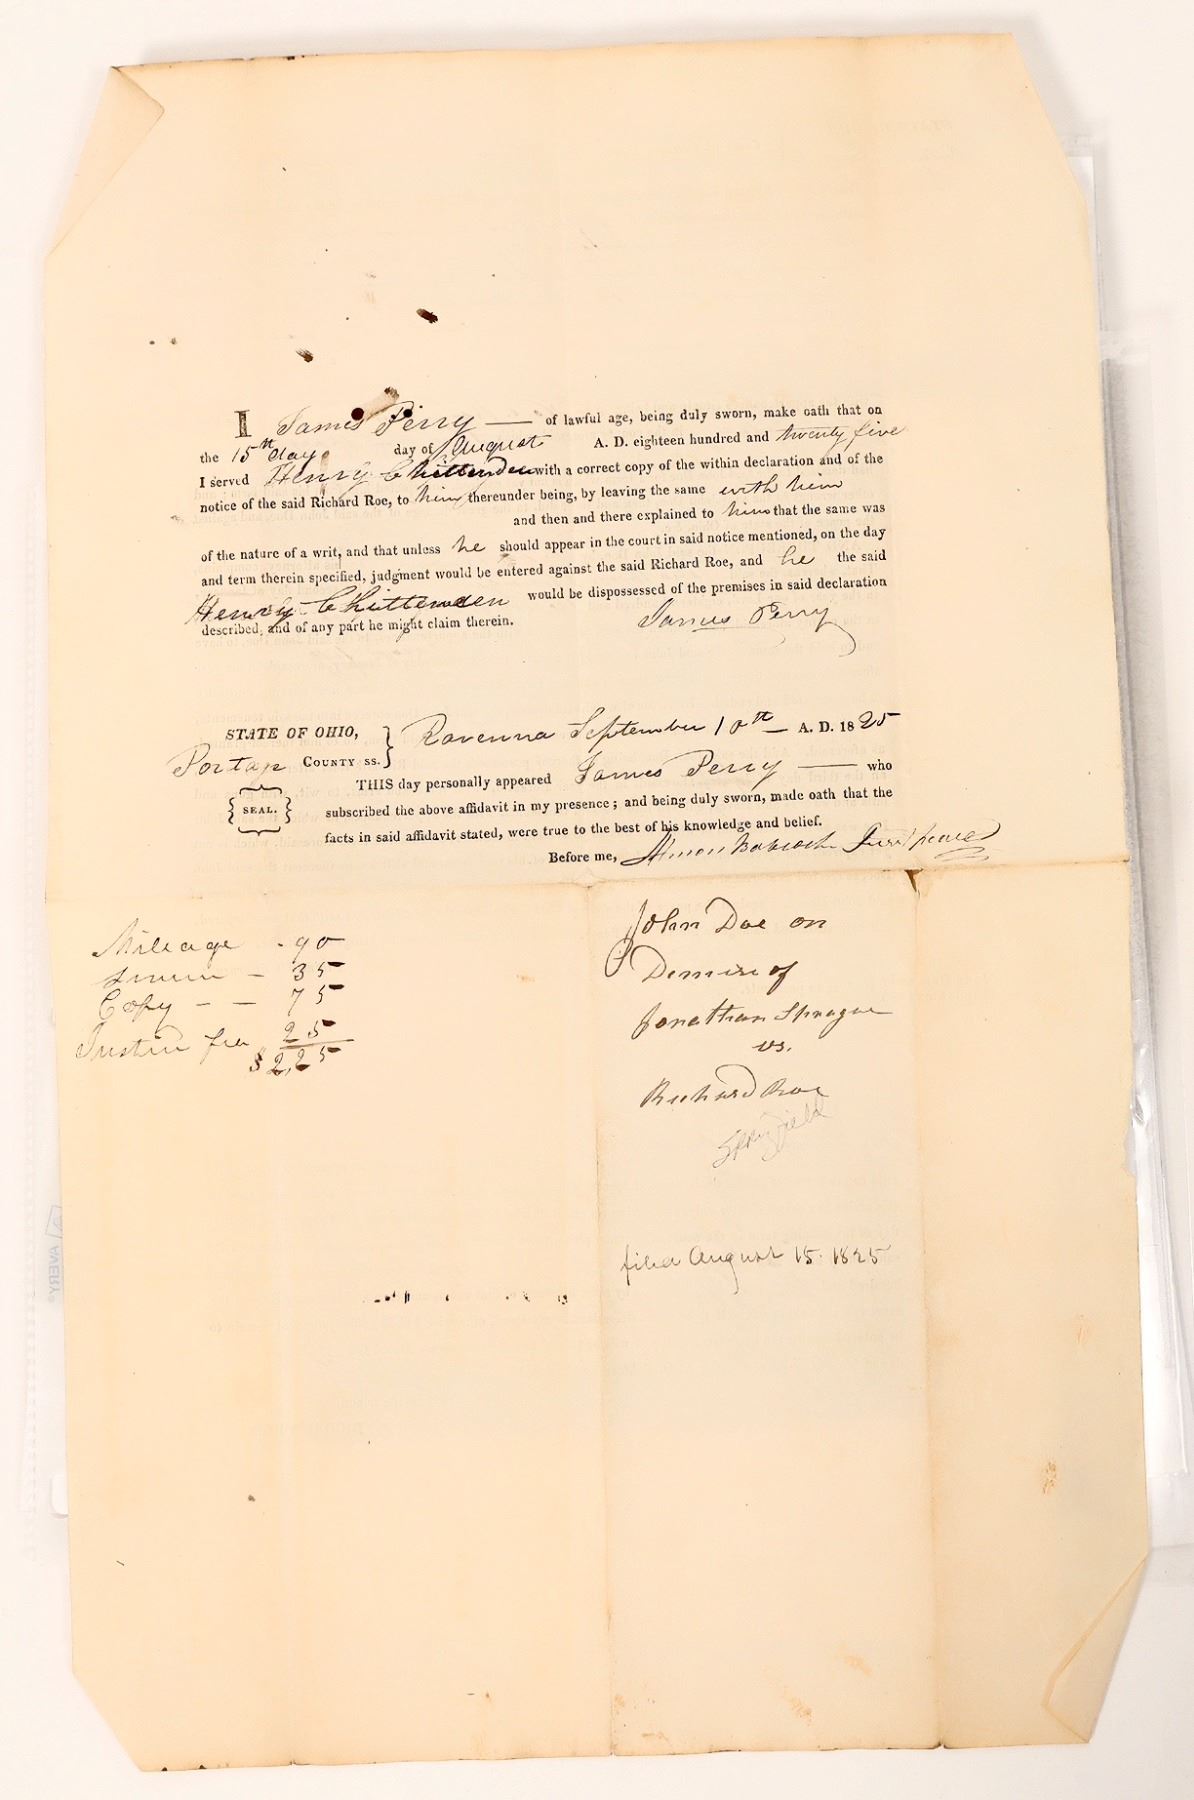 I James Perry — of lawful age, being duly sworn, make oath that on
the 15th day day of August A. D. eighteen hundred and twenty five
I served Henry Chittenden with a correct copy of the within declaration and of the
notice of the said Richard Roe, to him thereunder being, by leaving the same with him
and then and there explained to him that the same was
of the nature of a writ, and that unless he should appear in the court in said notice mentioned, on the day
and term therein specified, judgment would be entered against the said Richard Roe, and he the said
Henry Chittenden would be dispossessed of the premises in said declaration
described, and of any part he might claim therein.
James Perry
STATE OF OHIO,
Portage COUNTY ss. } Ravenna September 10th — A. D. 1825
THIS day personally appeared James Perry — who
{ SEAL. } subscribed the above affidavit in my presence; and being duly sworn, made oath that the
facts in said affidavit stated, were true to the best of his knowledge and belief.
Before me, Almon Babcock Just peace
Mileage - 90
35
Copy - - 75
Justice fee 25
$2,25
John Doe on
Demise of
Jonathan Sprague
vs.
Richard Roe
Springfield
filed August 15. 1825
AVERY